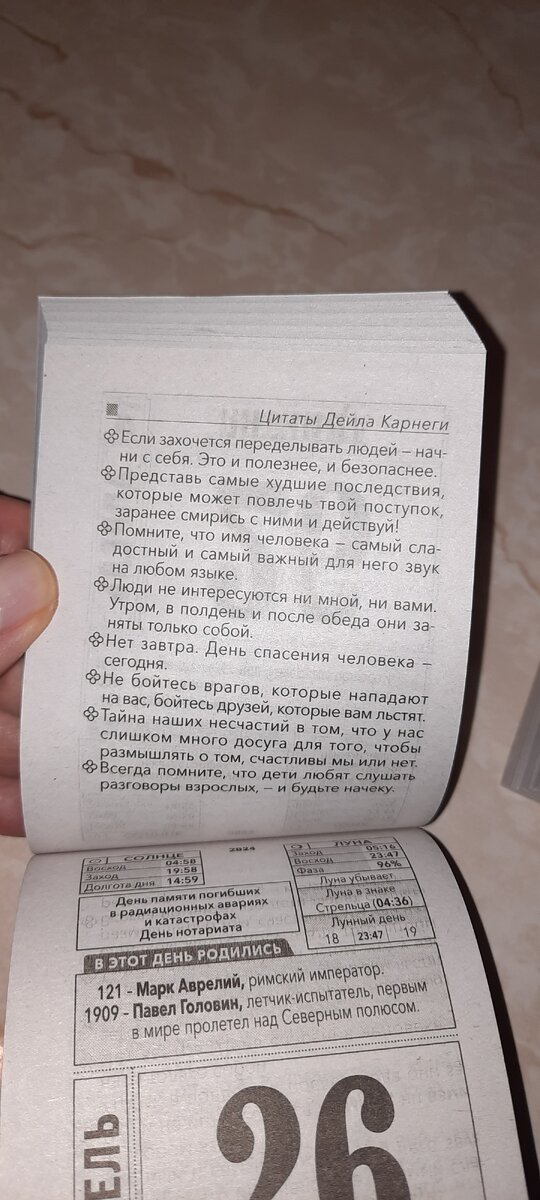 Цитаты Дейла Карнеги
Если захочется переделывать людей – нач-
ни с себя. Это и полезнее, и безопаснее.
Представь самые худшие последствия,
которые может повлечь твой поступок,
заранее смирись с ними и действуй!
Помните, что имя человека – самый сла-
достный и самый важный для него звук
на любом языке.
Люди не интересуются ни мной, ни вами.
Утром, в полдень и после обеда они за-
няты только собой.
Нет завтра. День спасения человека –
сегодня.
Не бойтесь врагов, которые нападают
на вас, бойтесь друзей, которые вам льстят.
Тайна наших несчастий в том, что у нас
слишком много досуга для того, чтобы
размышлять о том, счастливы мы или нет.
Всегда помните, что дети любят слушать
разговоры взрослых, – и будьте начеку.
СОЛНЦЕ
Восход 04:58
Заход 19:58
Долгота дня 14:59
2024
ЛУНА
Заход 05:16
Восход 23:47
Фаза 96%
Луна убывает
Луна в знаке
Стрельца (04:36)
Лунный день
18 23:47 19
День памяти погибших
в радиационных авариях
и катастрофах
День нотариата
В ЭТОТ ДЕНЬ РОДИЛИСЬ
121 - Марк Аврелий, римский император.
1909 - Павел Головин, летчик-испытатель, первым
в мире пролетел над Северным полюсом.
ЕЛЬ
26